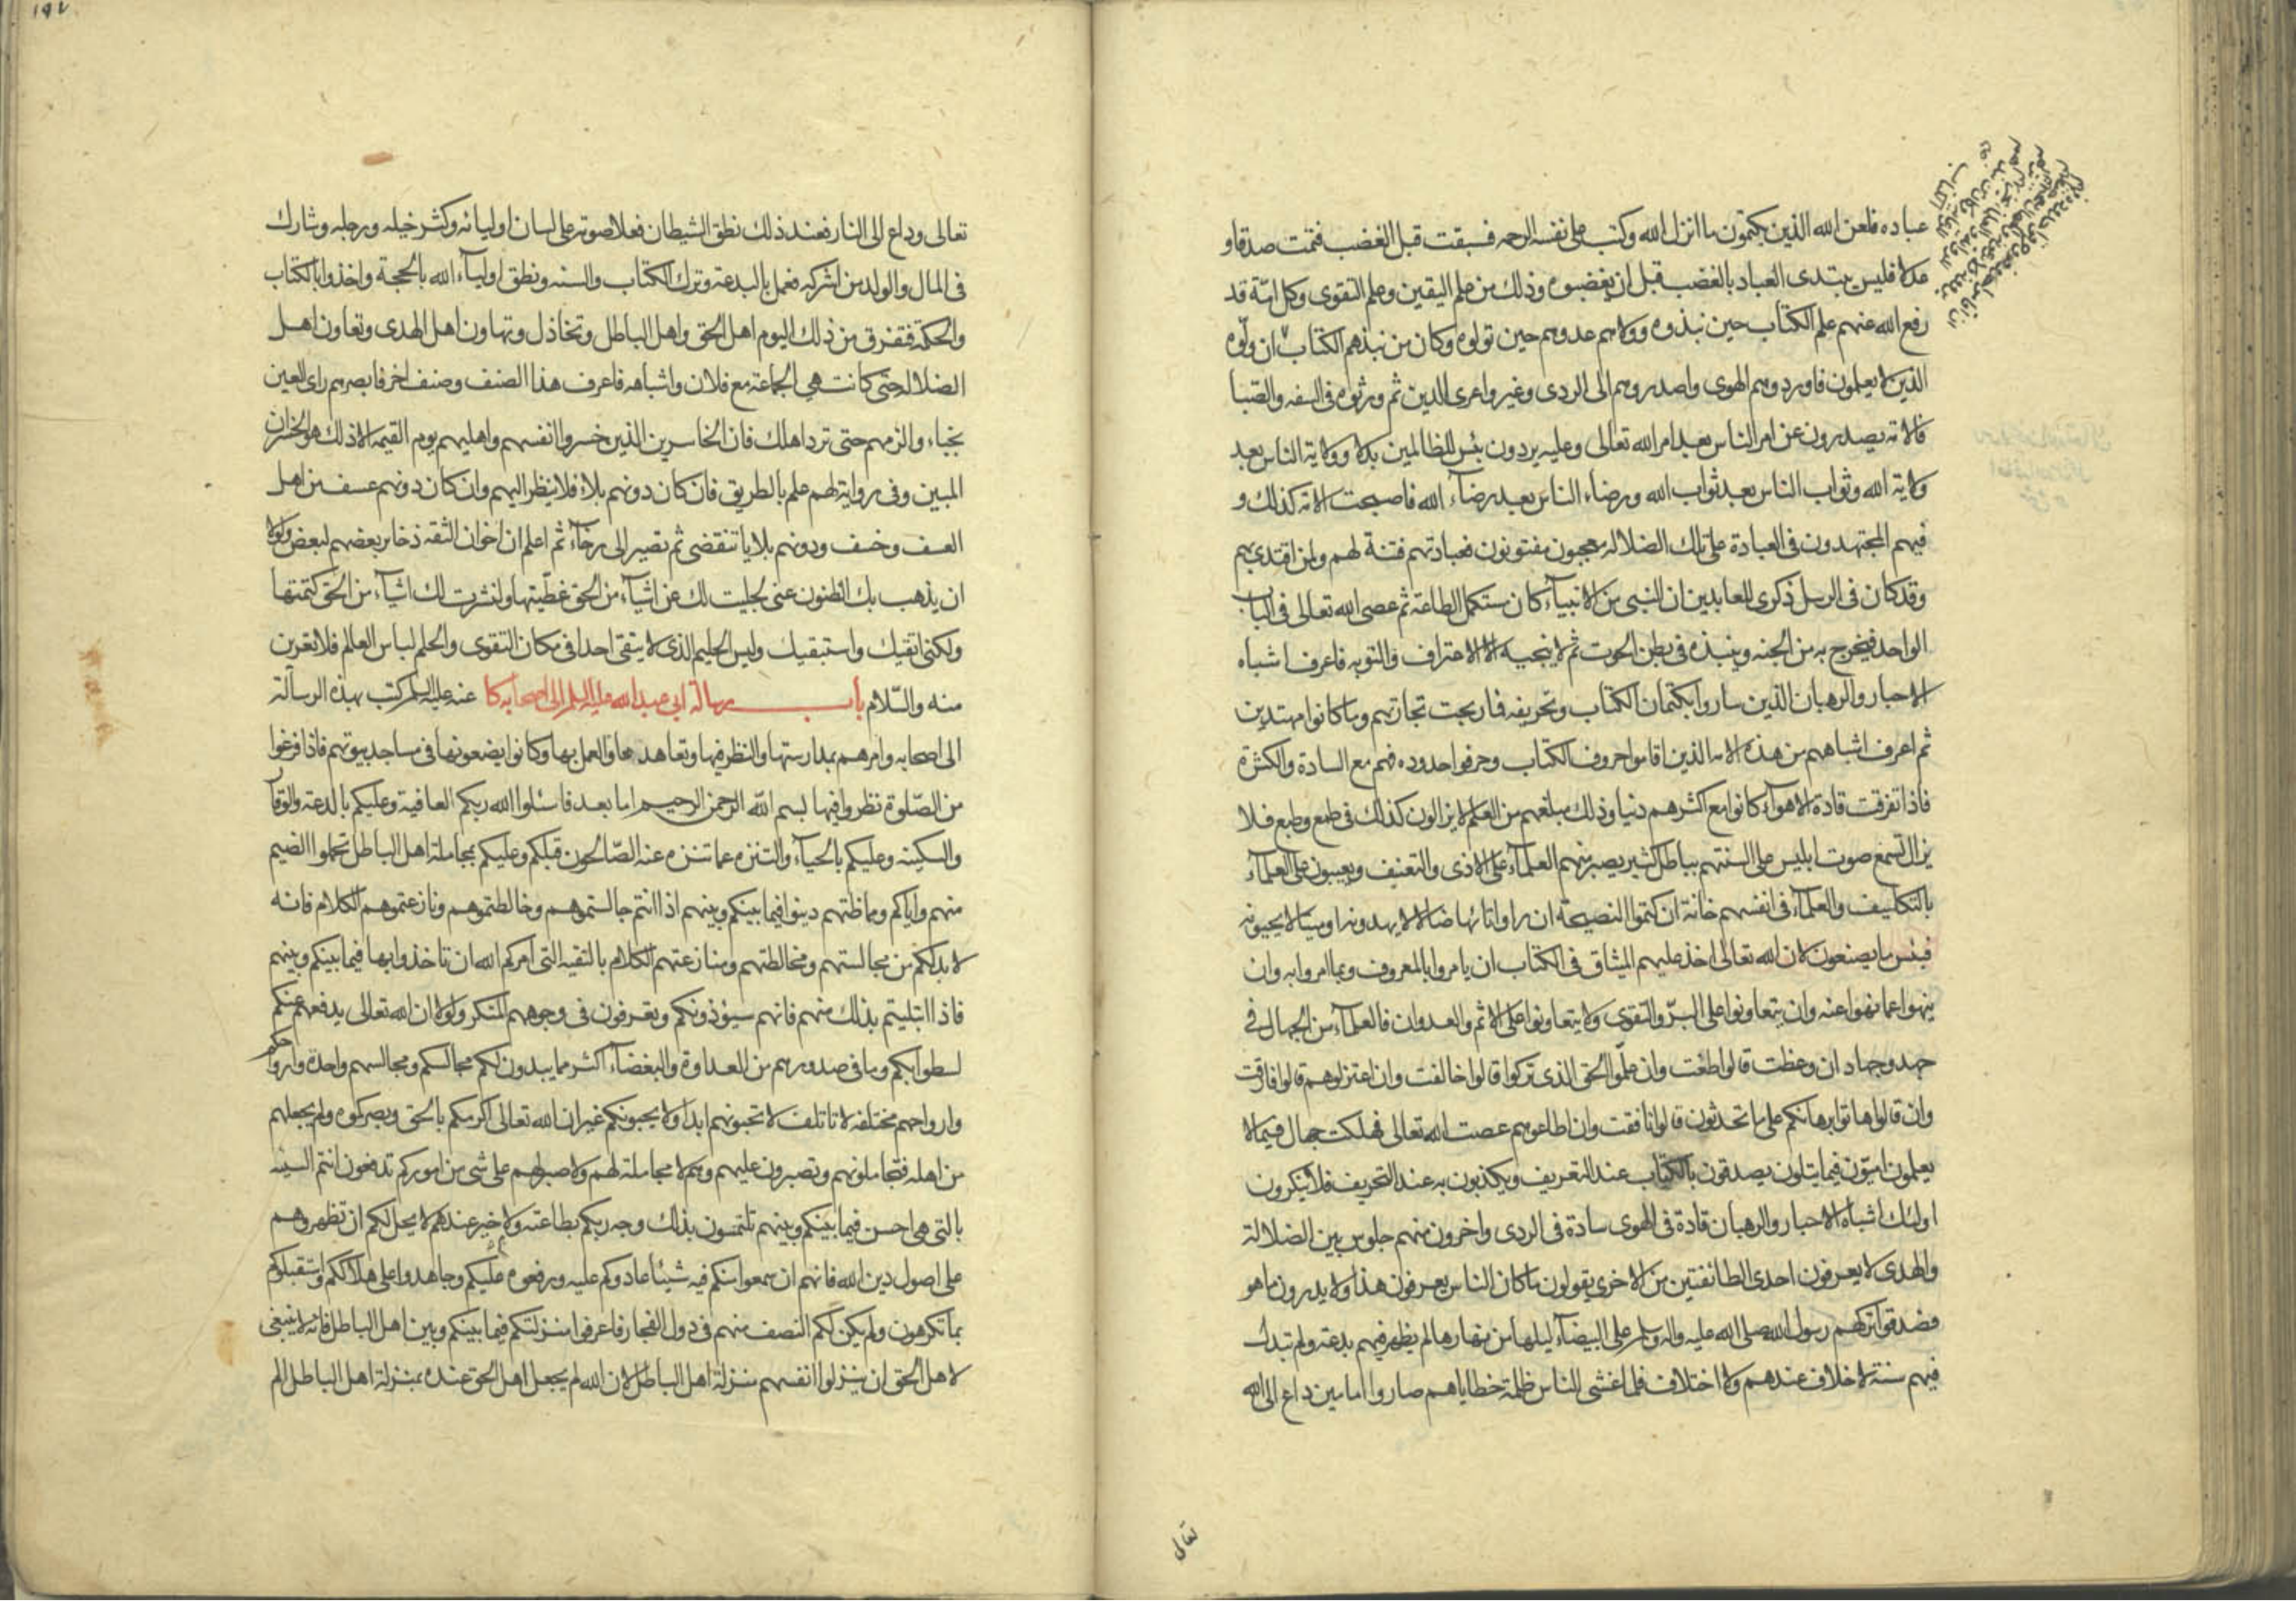 عباده فلعن الله الذين يكتمون ما انزل الله وكتب على نفسه الرحمه فسبقت قبل الغضب فتمت صدقا و
عدلا فليس يبتدى العباد بالغضب قبل ان يغضبوه وذلك من علم اليقين وعلم التقوى وكل امّة قد
رفع الله عنهم علم الكتاب حين نبذوه وولاهم عدوهم حين تولوه وكان من نبذهم الكتاب ان ولّوه
الذين لا يعلمون فاوردوهم الهوى واصدروهم الى الردى وغيروا عرى الدين ثم ورثوه فى السفه والصّبا
فالامة يصدرون عن امر الناس بعد امر الله تعالى وعليه يردون بئس للظالمين بدلا وولاية الناس بعد
ولاية الله وثواب الناس بعد ثواب الله ورضاء الناس بعد رضاء الله فاصبحت الامة كذلك و
فيهم المجتهدون فى العبادة على تلك الضلاله معجبون مفتونون فعبادتهم فتنة لهم ولمن اقتدى بهم
وقد كان فى الرسل ذكرى للعابدين ان النبى من الانبياء كان يستكمل الطاعة ثم عصى الله تعالى فى الباب
الواحد فيخرج به من الجنه وينبذه فى بطن الحوت ثم لا ينجيه الا الاعتراف والتوبه فاعرف اشباه
الاحبار والرهبان الذين ساروا بكتمان الكتاب وتحريفه فما ربحت تجارتهم وما كانوا مهتدين
ثم اعرف اشباههم من هذه الامه الذين اقاموا حروف الكتاب وحرفوا حدوده فهم مع السادة والكثرة
فاذا تفرقت قادة الاهواء كانوا مع اكثرهم دنيا وذلك مبلغهم من العلم لا يزالون كذلك فى طمع وطبع فلا
يزال تسمع صوت ابليس على السنتهم بباطل كثير يصبر منهم العلماء على الاذى والتعنيف ويعيبون على العلماء
بالتكليف والعلماء فى انفسهم خانة ان كتموا النصيحة ان راوا تائها ضالا لا يهدونه او ميتا لا يحيونه
فبئس ما يصنعون لان الله تعالى اخذ عليهم الميثاق فى الكتاب ان يامروا بالمعروف وبما امروا به وان
ينهوا عما نهوا عنه وان يتعاونوا على البرّ والتقوى ولا يتعاونوا على الاثم والعدوان فالعلماء من الجهال فى
جهد وجهاد ان وعظت قالوا طغت وان علّموا الحق الذى تركوا قالوا خالفت وان اعتزلوهم قالوا فارقت
وان قالوا هاتوا برهانكم على ما تحدثون قالوا نافقت وان اطاعوهم عصت الله تعالى فهلكت جهال فيما لا
يعلمون اميّون فيما يتلون يصدقون بالكتاب عند التعريف ويكذبون به عند التحريف فلا ينكرون
اولئك اشباه الاحبار والرهبان قادة فى الهوى سادة فى الردى واخرون منهم جلوس بين الضلالة
والهدى لا يعرفون احدى الطائفتين من الاخرى يقولون ما كان الناس يعرفون هذا ولا يدرون ما هو
فصدقوا تركهم رسول الله صلى الله عليه واله وسلم على البيضاء ليلها من نهارها لم يظهر فيهم بدعة ولم تبدل
فيهم سنة لا خلاف عندهم ولا اختلاف فلما غشى الناس ظلمة خطاياهم صاروا امامين داع الى الله
تعالى
١٩٧
تعالى وداع الى النار فعند ذلك نطق الشيطان فعلا صوته على لسان اوليائه وكثر خيله ورجله وشارك
فى المال والولد من اشركه فعمل بالبدعة وترك الكتاب والسنه ونطق اولياء الله بالحجة واخذوا بالكتاب
والحكمة فتفرق من ذلك اليوم اهل الحق واهل الباطل وتخاذل وتهاون اهل الهدى وتعاون اهل
الضلاله حتى كانت هى الجماعة مع فلان واشباهه فاعرف هذا الصنف وصنف اخر فابصرهم راى العين
نجباء والزمهم حتى ترد اهلك فان الخاسرين الذين خسروا انفسهم واهليهم يوم القيمه الا ذلك هو الخسران
المبين وفى رواية لهم علم بالطريق فان كان دونهم بلاء فلا ينظر اليهم وان كان دونهم عسف من اهل
العسف وخسف ودونهم بلايا تنقضى ثم تصير الى رخاء ثم اعلم ان اخوان الثقه ذخاير بعضهم لبعض ولولا
ان يذهب بك الظنون عنى لجليت لك عن اشياء من الحق غطّيتها ولنشرت لك اشياء من الحق كتمتها
ولكنى اتقيك واستبقيك وليس الحليم الذى لا يتقى احدا فى مكان التقوى والحلم لباس العالم فلا تعرين
منه والسّلام باب رسالة ابى عبد الله عليه السلم الى اصحابه كا عنه عليه السلم كتب بهذه الرسالة
الى اصحابه وامرهم بمدارستها والنظر فيها وتعاهدها والعمل بها وكانوا يضعونها فى مساجد بيوتهم فاذا فرغوا
من الصّلوة نظروا فيها بسم الله الرحمن الرحيم اما بعد فاسئلوا الله ربكم العافية وعليكم بالدعة والوقار
والسكينه وعليكم بالحياء والتنزه عما تنزه عنه الصّالحون قبلكم وعليكم بمجاملة اهل الباطل تحملوا الضيم
منهم واياكم ومماظتهم دينوا فيما بينكم وبينهم اذا انتم جالستموهم وخالطتموهم ونازعتموهم الكلام فانه
لا بد لكم من مجالستهم ومخالطتهم ومنازعتهم الكلام بالتقيه التى امركم الله ان تاخذوا بها فيما بينكم وبينهم
فاذا ابتليتم بذلك منهم فانهم سيؤذونكم وتعرفون فى وجوههم المنكر ولولا ان الله تعالى يدفعهم عنكم
لسطوا بكم وما فى صدورهم من العداوة والبغضاء اكثر مما يبدون لكم مجالسكم ومجالسهم واحدة وارواحكم
وارواحهم مختلفه لا تاتلف لا تحبونهم ابدا ولا يحبونكم غير ان الله تعالى اكرمكم بالحق وبصركموه ولم يجعلهم
من اهله فتجاملونهم وتصبرون عليهم وهم لا مجاملة لهم ولا صبر لهم على شى من اموركم تدفعون انتم السيئه
بالتى هى احسن فيما بينكم وبينهم تلتمسون بذلك وجه ربكم بطاعته ولا خير عندهم لا يحل لكم ان تظهروهم
على اصول دين الله فانهم ان سمعوا منكم فيه شيئا عادوكم عليه ورفعوه عليكم وجاهدوا على هلاككم واستقبلوكم
بما تكرهون ولم يكن لكم النصف منهم فى دول الفجار فاعرفوا منزلتكم فيما بينكم وبين اهل الباطل فانه لا ينبغى
لاهل الحق ان ينزلوا انفسهم منزلة اهل الباطل لان الله لم يجعل اهل الحق عنده بمنزلة اهل الباطل الم